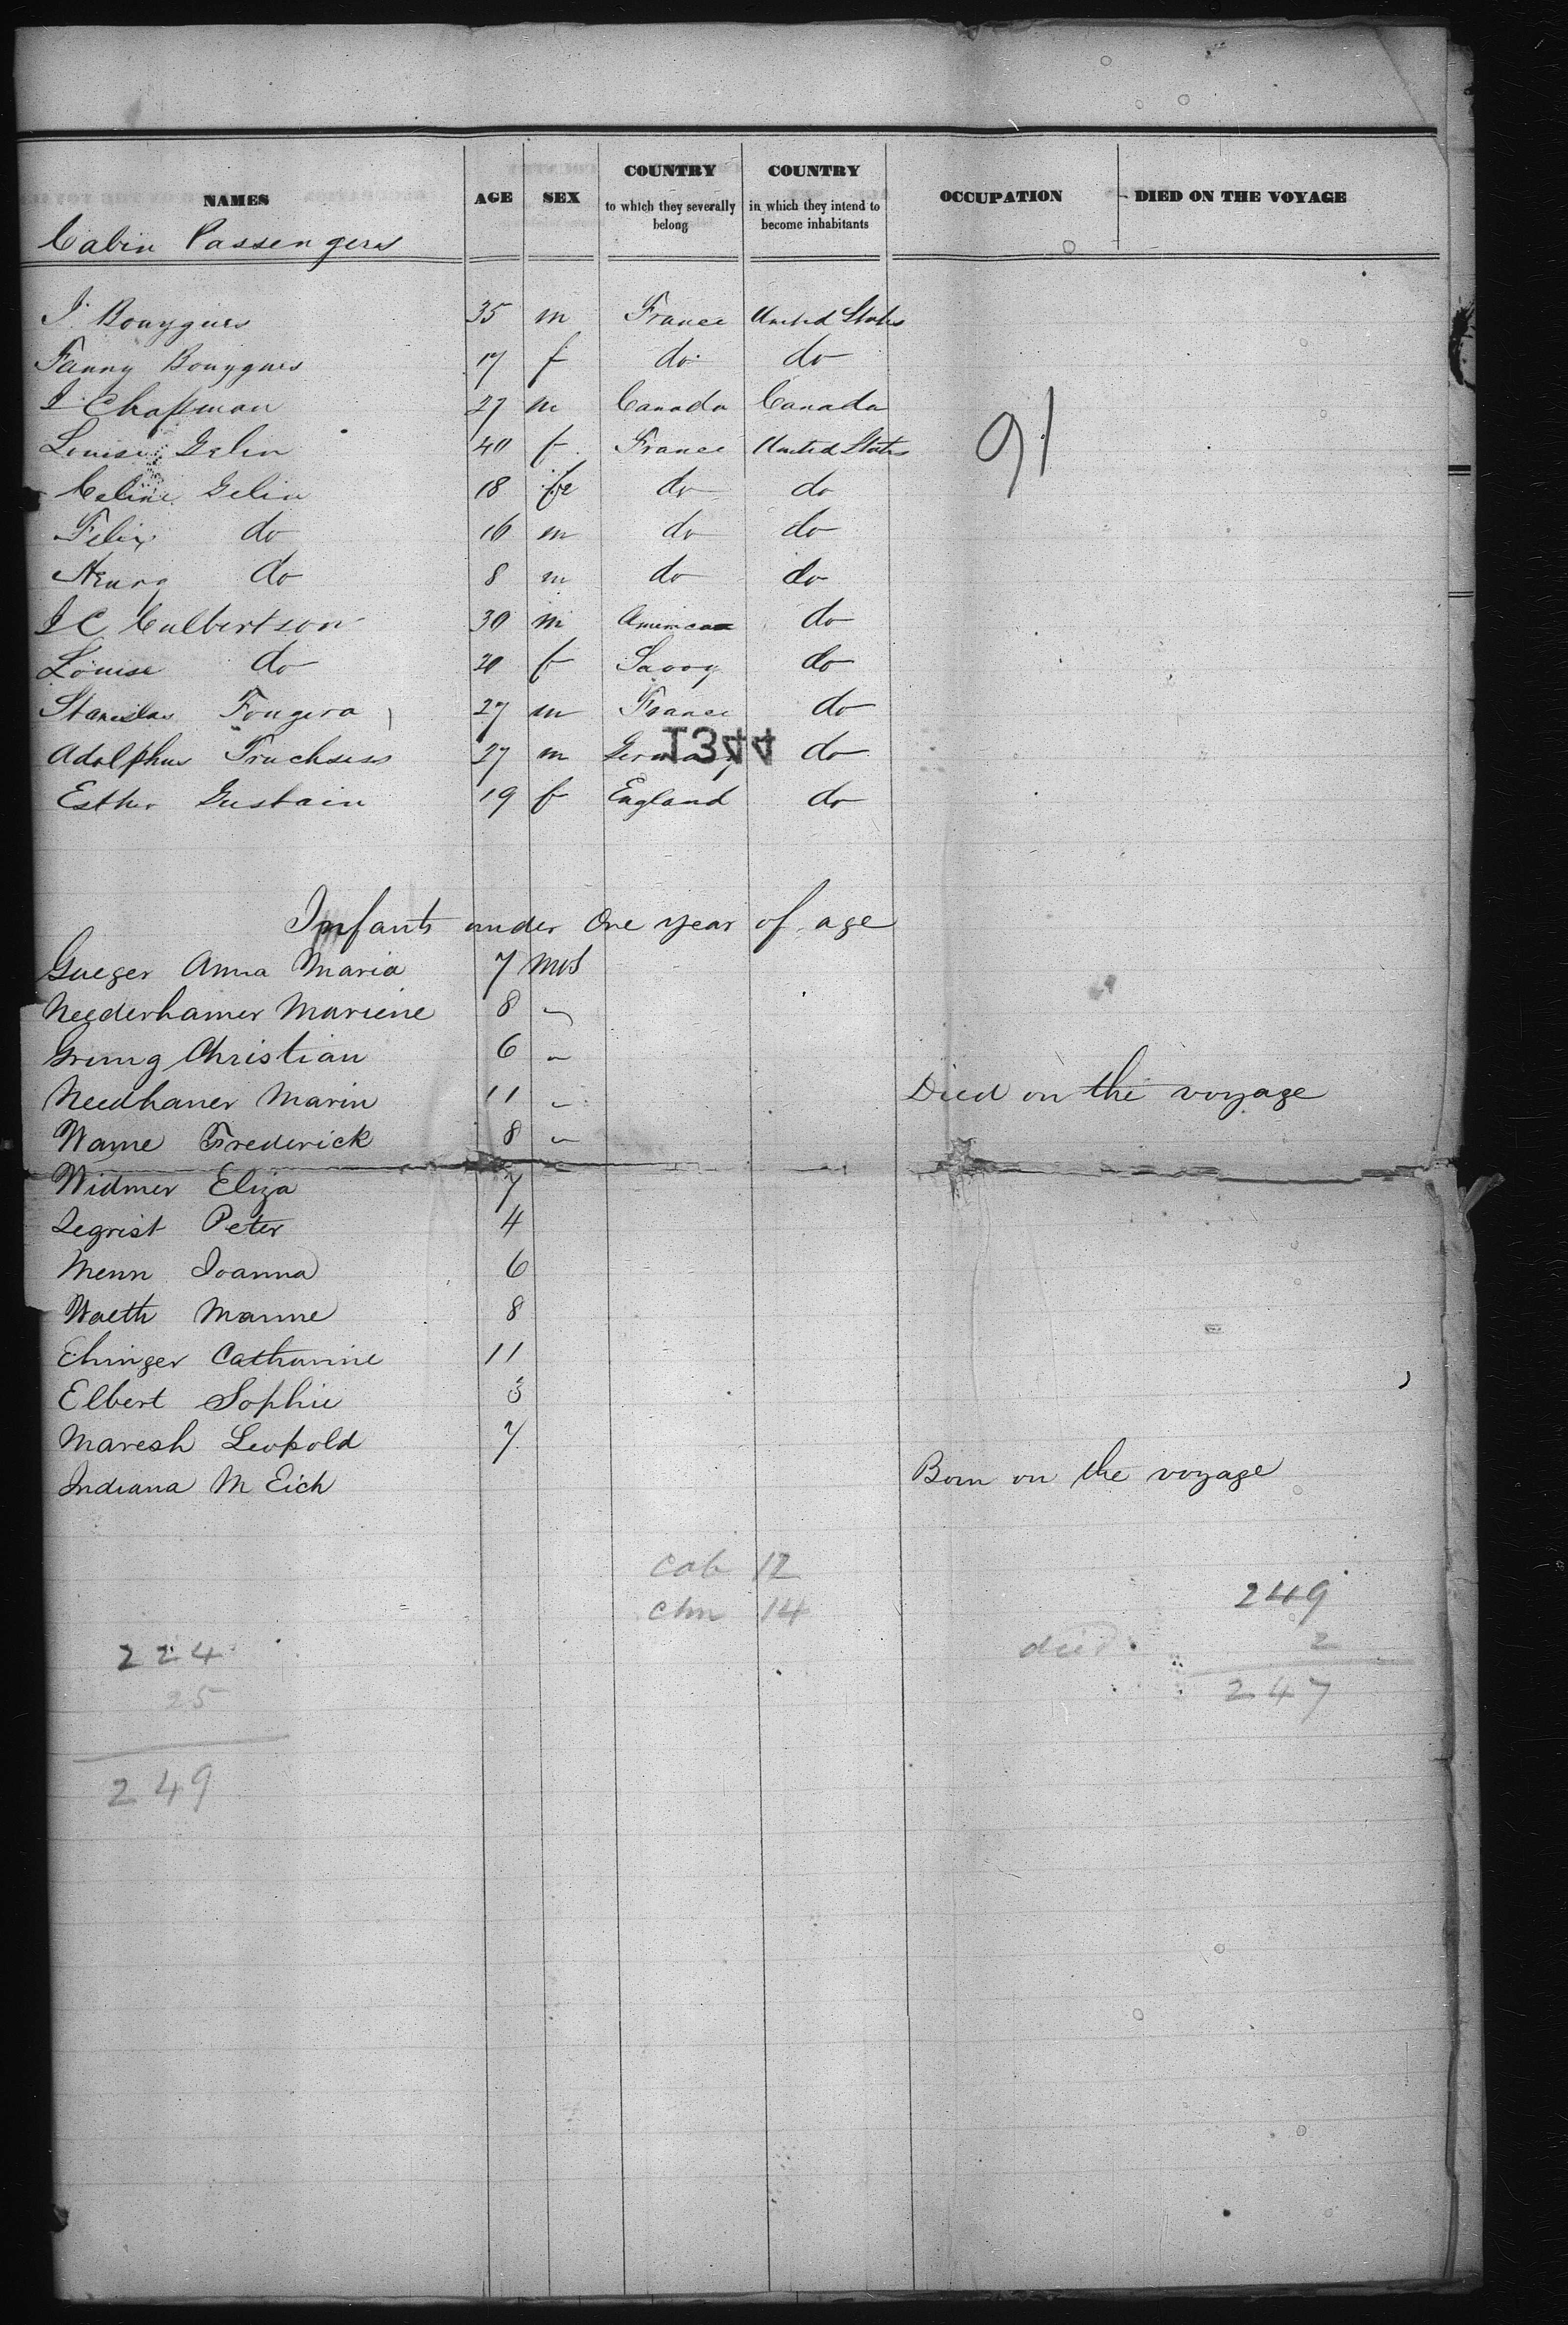 NAMES AGE SEX COUNTRY to which they severally belong COUNTRY in which they intend to become inhabitants OCCUPATION DIED ON THE VOYAGE
Cabin Passengers
J. Bouygues 35 m France United States
Fanny Bouygues 17 f do do
J Chapman 27 m Canada Canada
Louise Gelin 40 f France United States
91
Celine Gelin 18 fe do do
Felix do 16 m do do
Henry do 8 m do do
J C Culbertson 30 m America do
Louise do 20 f Savoy do
Stanislas Fougera 27 m France do
1344
Adolphus Truchsess 27 m Germany do
Esther Gustain 19 f England do
Infants under One year of age
Gueger Anna Maria 7 mos
Neederhamer Mariene 8 "
Grung Christian 6 "
Needhaner Marin 11 " Died on the voyage
Wame Frederick 8 "
Widmer Eliza 7
Segrist Peter 4
Menn Joanna 6
Waeth Manne 8
Ehinger Catharine 11
Elbert Sophie 3
Maresh Leopold 7
Indiana M Eich Born on the voyage
cab 12
chn 14
249
died 2
247
224
25
249